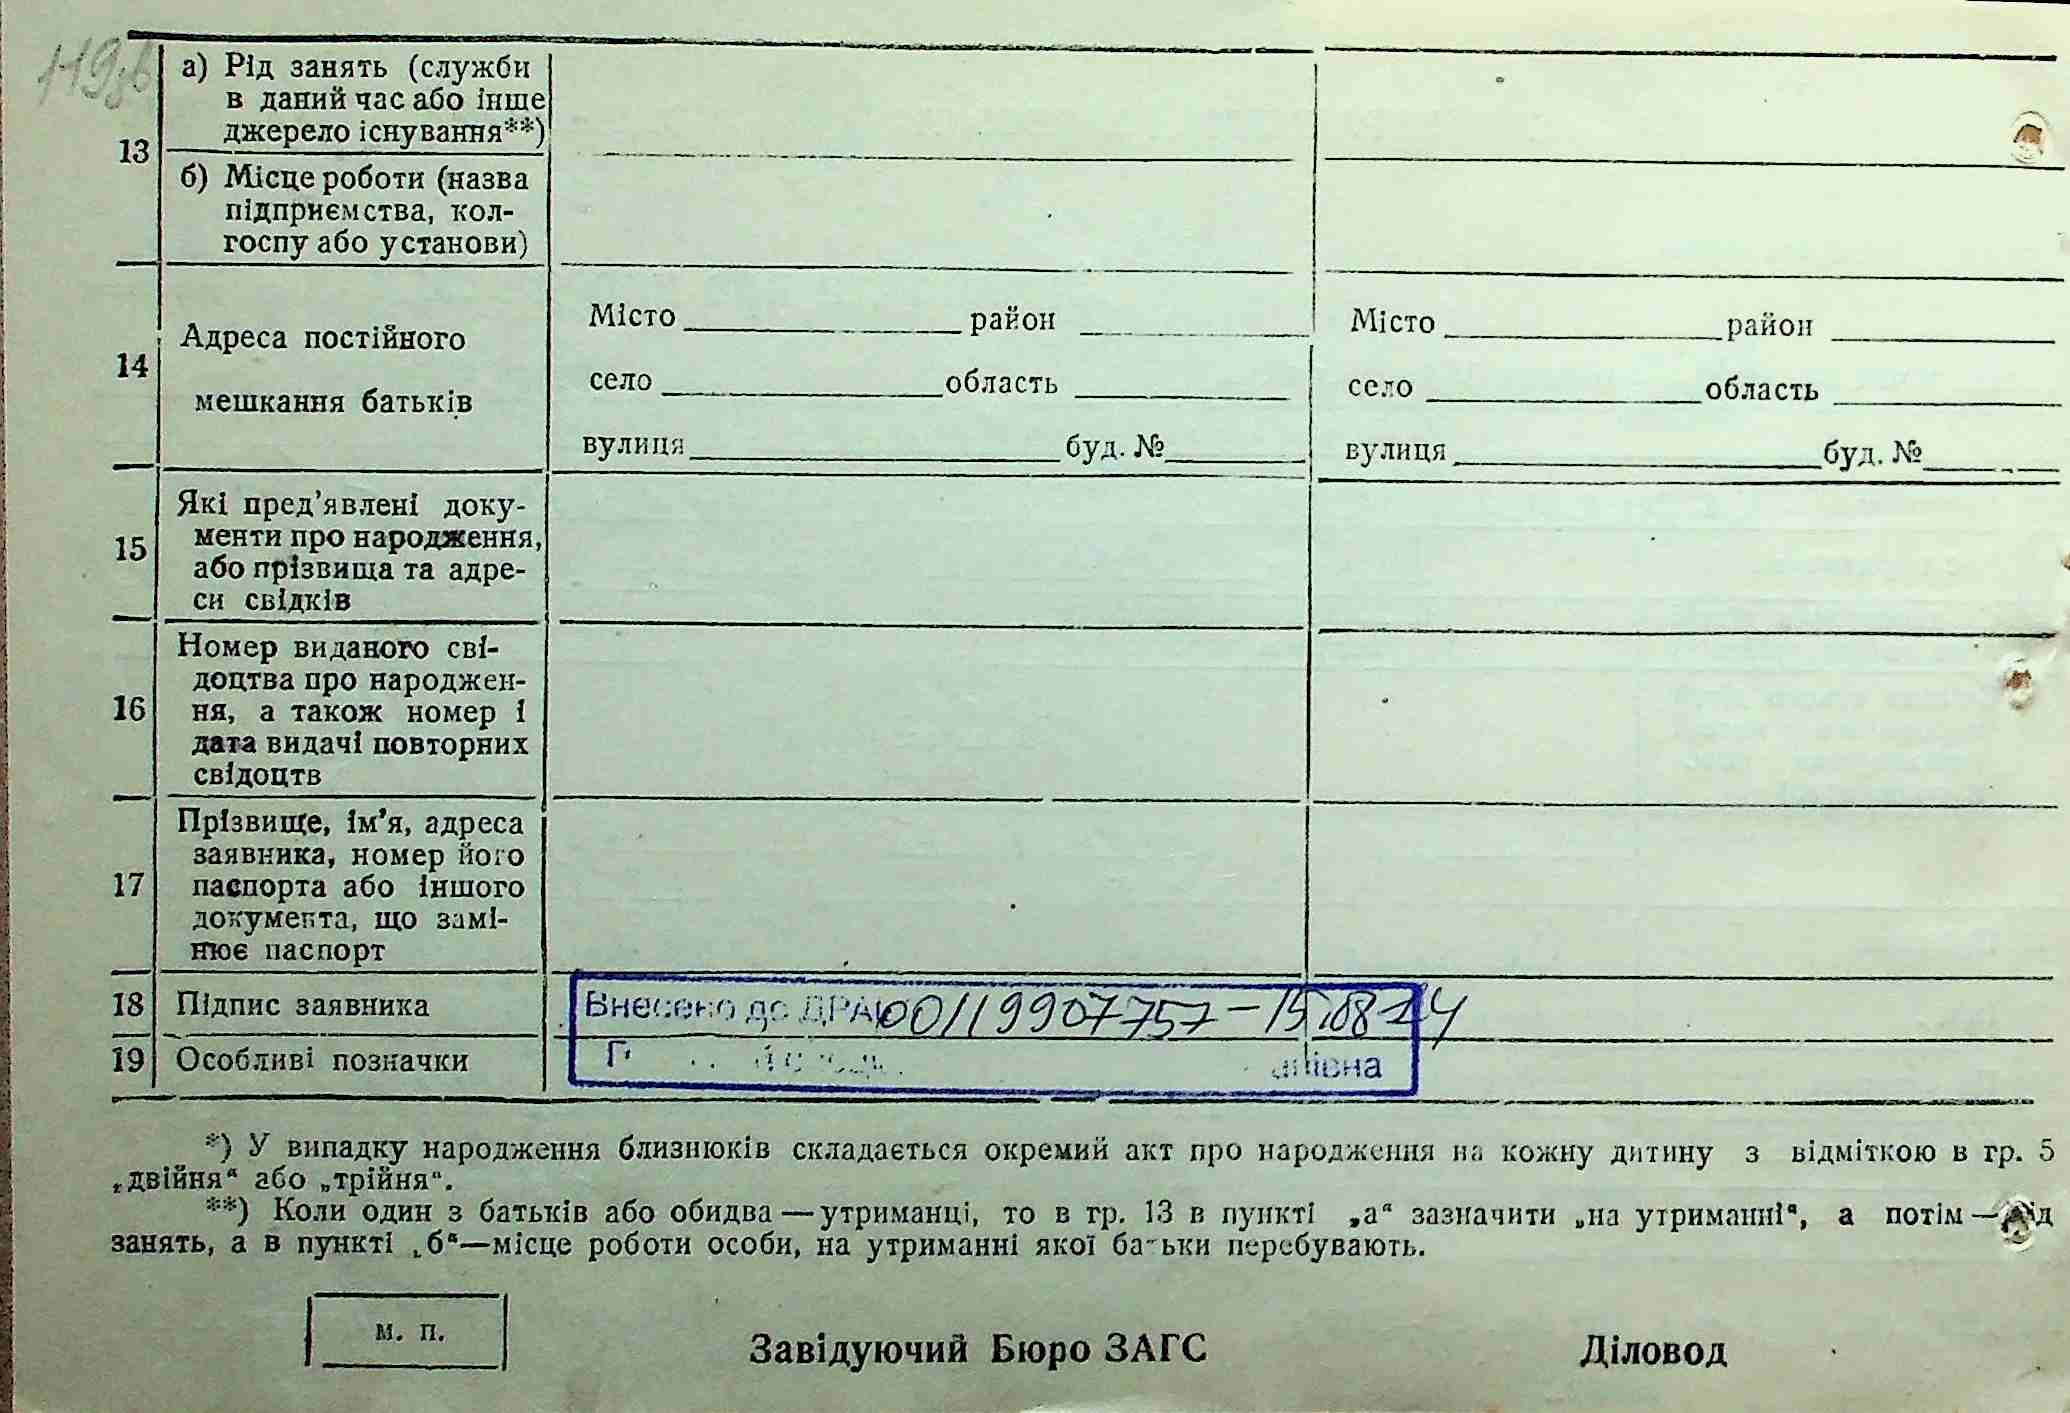 119зв
а) Рід занять (служби
в даний час або інше
джерело існування**)
13
б) Місце роботи (назва
підприємства, кол-
госпу або установи)
14
Адреса постійного
мешкання батьків
Місто район
село область
вулиця буд. №
Місто район
село область
вулиця буд. №
15
Які пред’явлені доку-
менти про народження,
або прізвища та адре-
си свідків
16
Номер виданого сві-
доцтва про народжен-
ня, а також номер і
дата видачі повторних
свідоцтв
17
Прізвище, ім’я, адреса
заявника, номер його
паспорта або іншого
документа, що замі-
нює паспорт
18 Підпис заявника
Внесено до ДРАЦ 00119907757-15.08.24
19 Особливі позначки
*) У випадку народження близнюків складається окремий акт про народження на кожну дитину з відміткою в гр. 5
„двійня“ або „трійня“.
**) Коли один з батьків або обидва — утриманці, то в гр. 13 в пункті „а“ зазначити „на утриманні“, а потім — рід
занять, а в пункті „б“—місце роботи особи, на утриманні якої батьки перебувають.
м. п.
Завідуючий Бюро ЗАГС Діловод